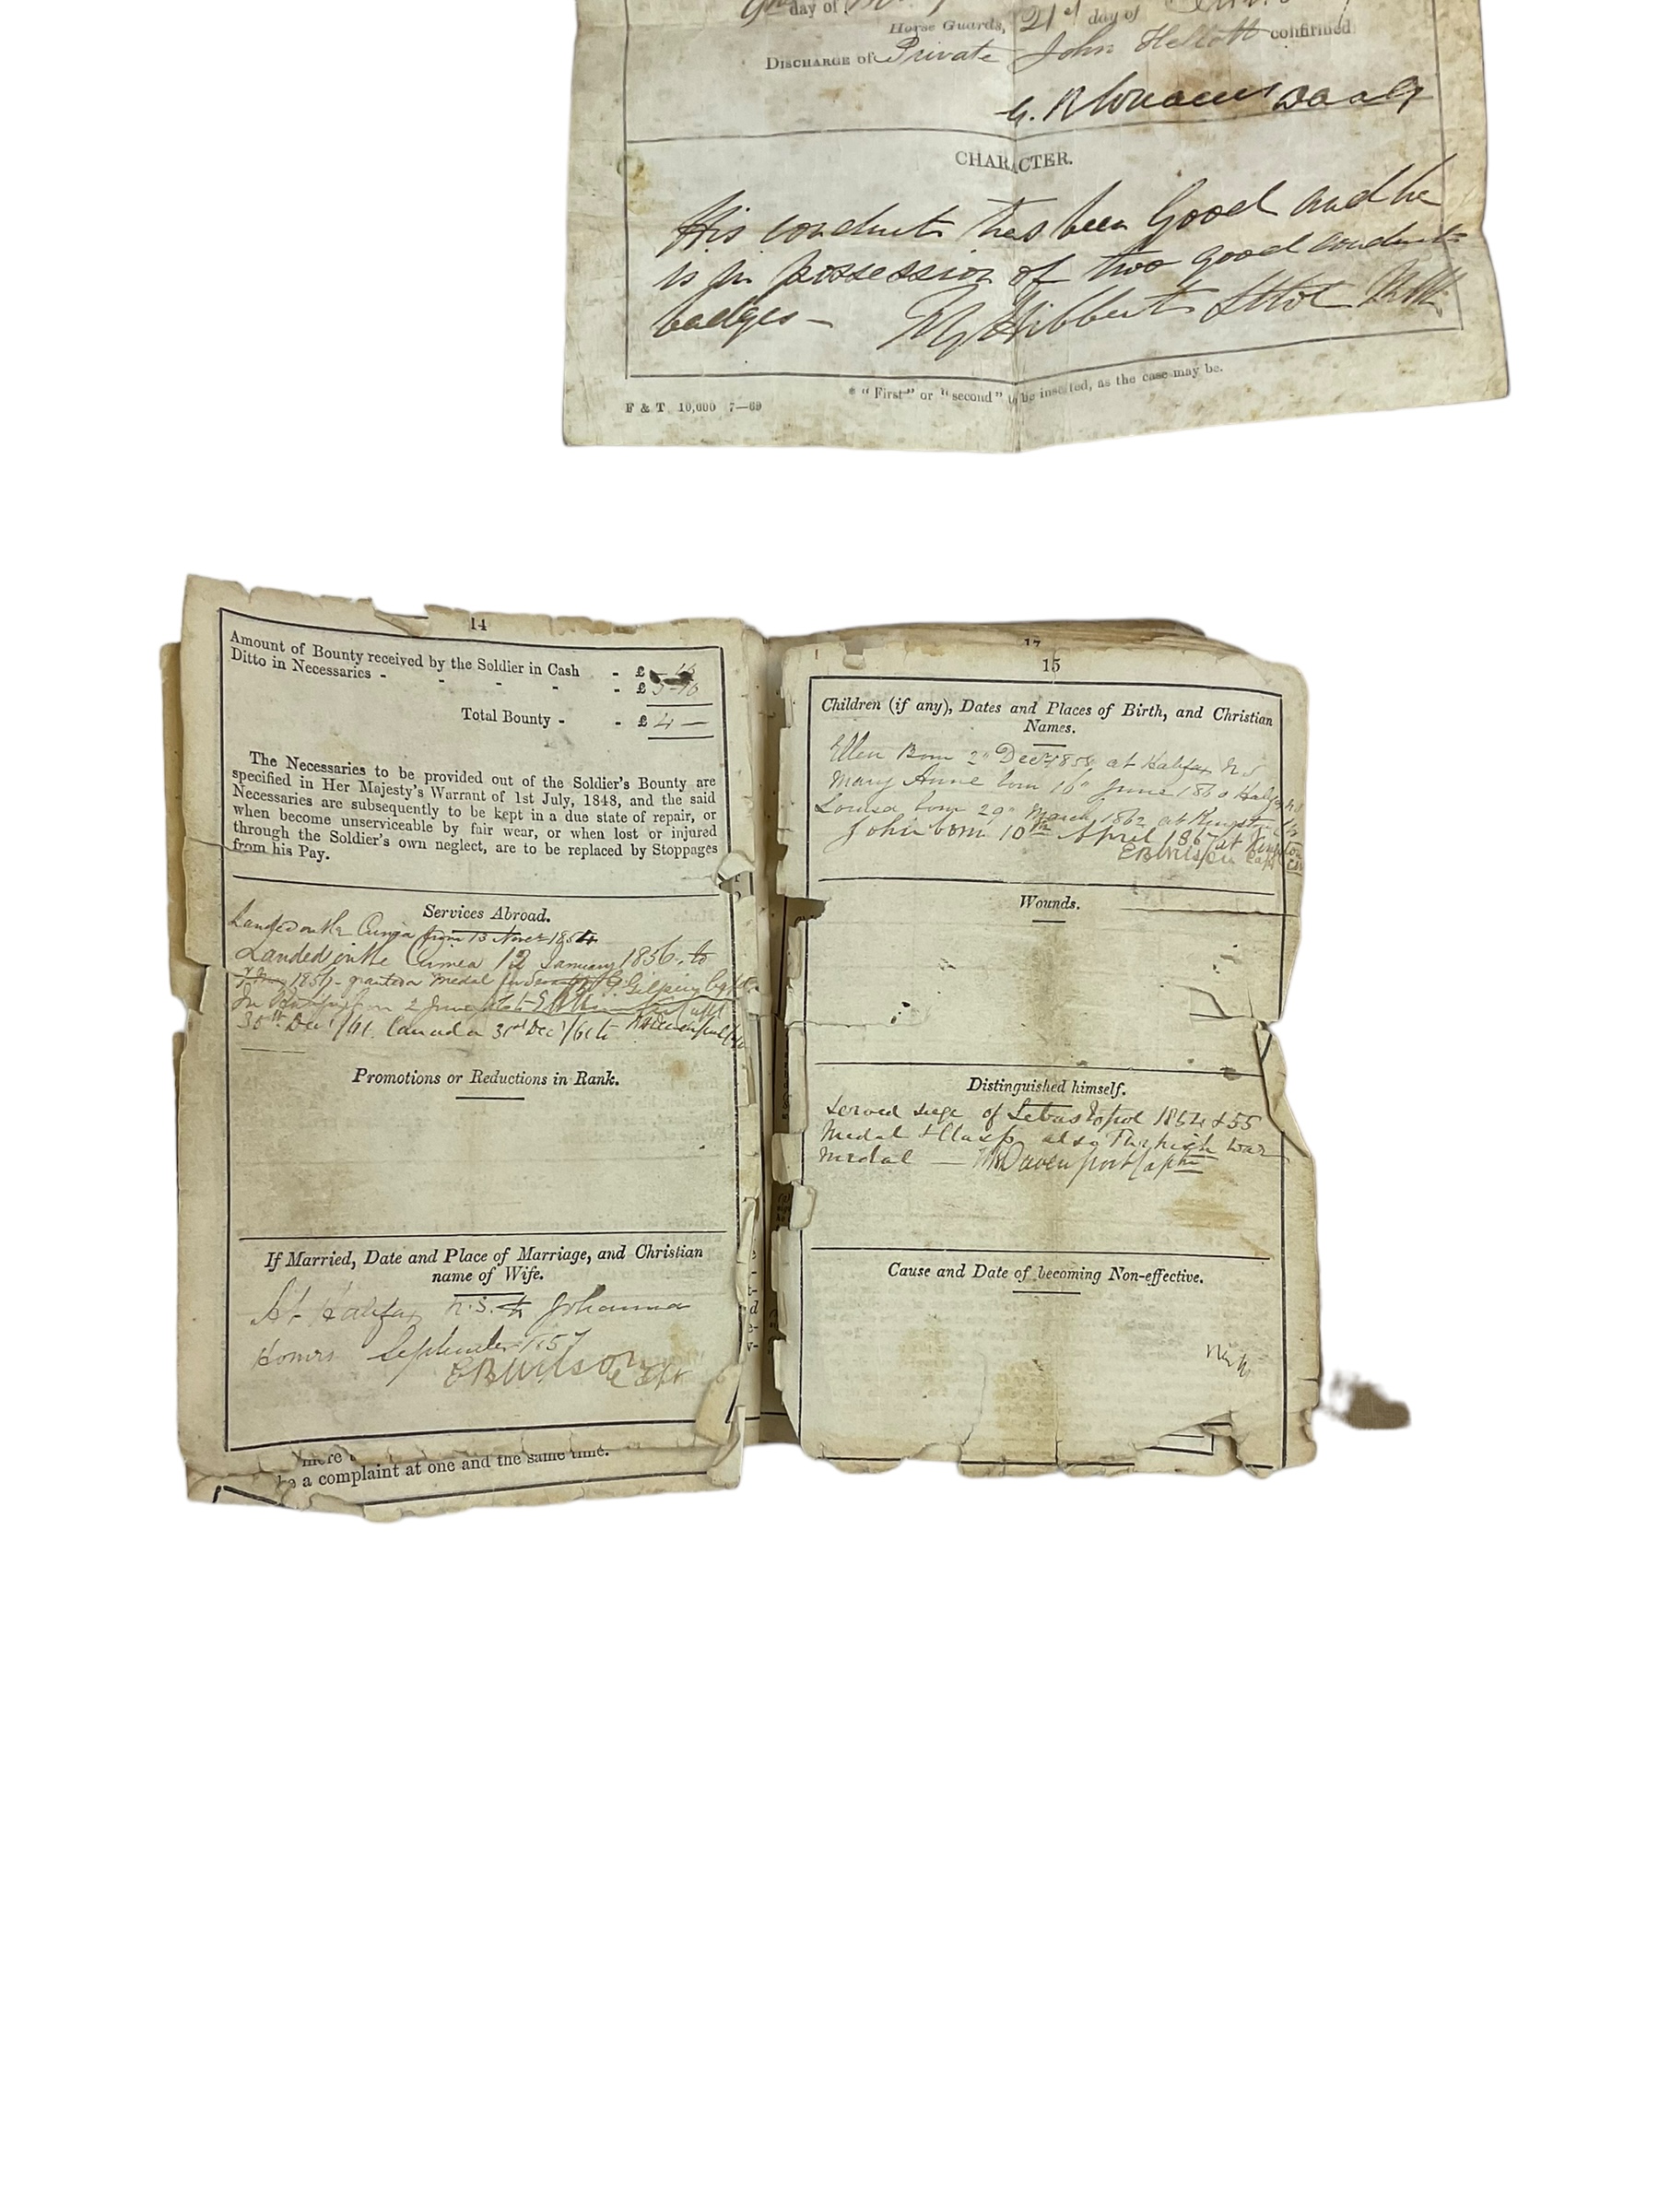 day of
Horse Guards, 21st day of
DISCHARGE of Private John Hellott confirmed
CHARACTER.
His conduct has been Good and he
is in possession of two good conduct
badges —
* "First" or "second" to be inserted, as the case may be.
F & T. 10,000 7—69
14
Amount of Bounty received by the Soldier in Cash - £
Ditto in Necessaries - - - - - £
Total Bounty - - £ 4 —
The Necessaries to be provided out of the Soldier's Bounty are
specified in Her Majesty's Warrant of 1st July, 1848, and the said
Necessaries are subsequently to be kept in a due state of repair, or
when become unserviceable by fair wear, or when lost or injured
through the Soldier's own neglect, are to be replaced by Stoppages
from his Pay.
Services Abroad.
Landed in the Crimea from 13 Novr 1854
Landed in the Crimea 12 January 1856. to
1856 - granted a medal for G. Gilpin Capt.
from 2 June
30th Decr /61. Canada 31st Decr /61 to
Promotions or Reductions in Rank.
If Married, Date and Place of Marriage, and Christian
name of Wife.
At Halifax N.S. to Johanna
September 1857
EB Wilson Capt
here
be a complaint at one and the same time.
17
15
Children (if any), Dates and Places of Birth, and Christian
Names.
Ellen Born 2nd Decr 1858 at Halifax N S
Mary Anne born 16th June 1860 Halifax N.S
Louisa born 29th March 1862 at Kingston
John born 10th April 186 at Kingston
EB Wilson Capt
Wounds.
Distinguished himself.
Served siege of Sebastopol 1854 & 55
Medal & Clasp also Turkish War
Medal — Davenport Capt
Cause and Date of becoming Non-effective.